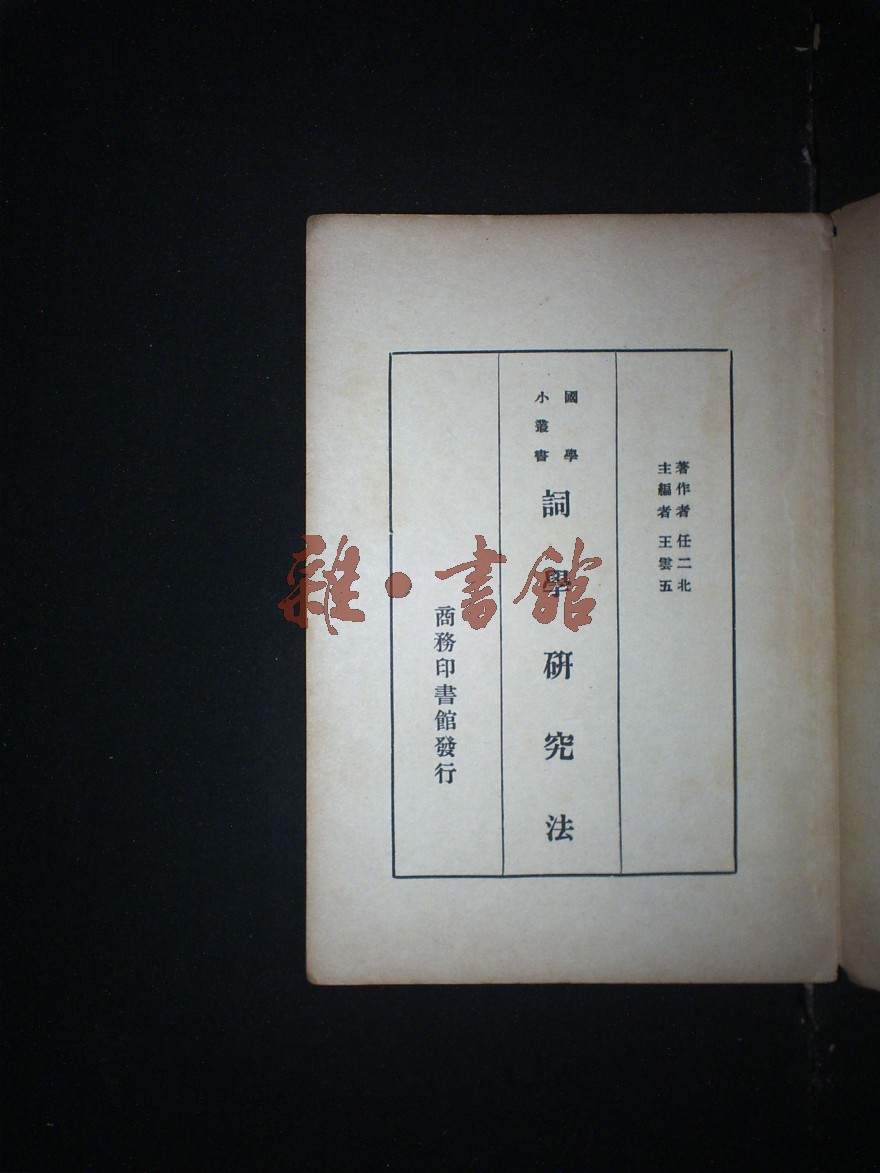 著作者 任二北
主編者 王雲五
國學
小叢書
詞學研究法
商務印書館發行
雜·書館